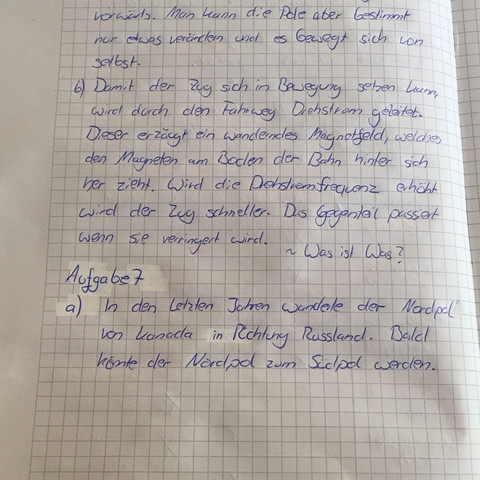 vorwärts. Man kann die Pole aber bestimmt
nur etwas verändern und es bewegt sich von
selbst.
b) Damit der Zug sich in Bewegung setzen kann,
wird durch den Fahrweg Drehstrom geleitet.
Dieser erzäugt ein wanderndes Magnetfeld, welches
den Magneten am Boden der Bahn hinter sich
her zieht. Wird die Drehstromfrequenz erhöht
wird der Zug schneller. Das Gegenteil passiert
wenn sie verringert wird.
~ Was ist Was?
Aufgabe 7
a) In den letzten Jahren wanderte der Nordpol
von Kanada in Richtung Russland. Bald
könnte der Nordpol zum Südpol werden.